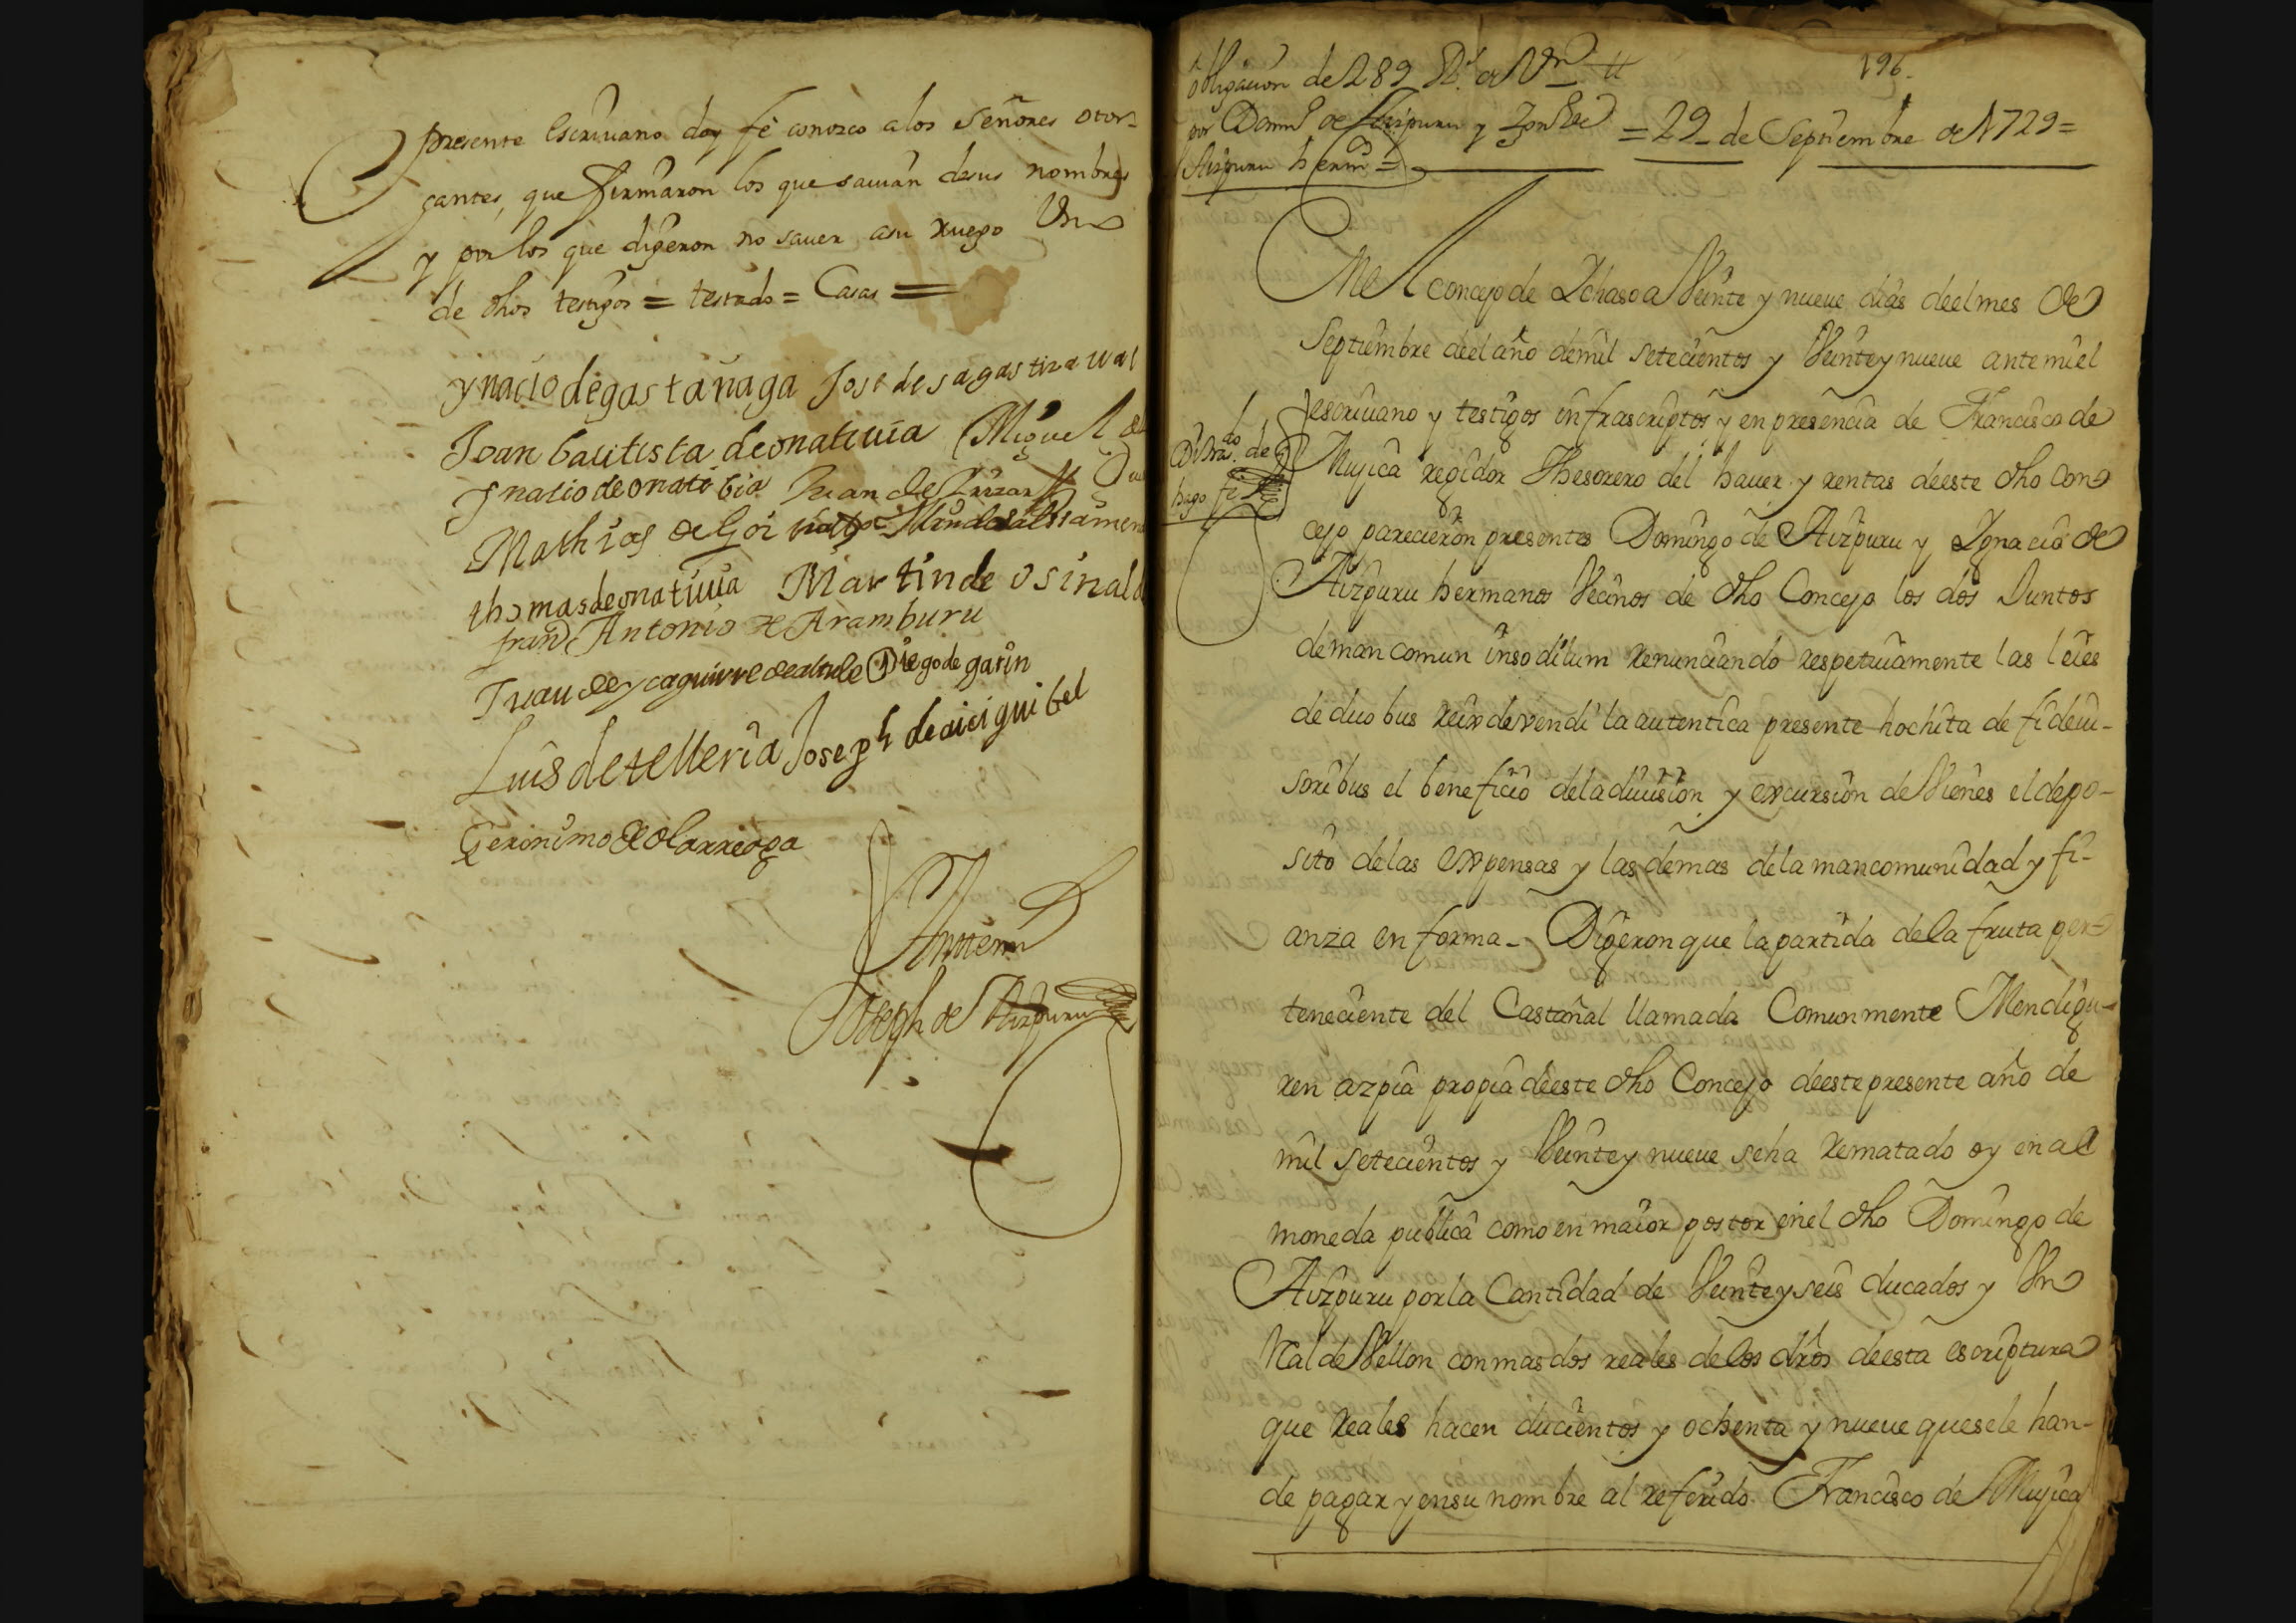 presente escriuano doy fe conozco a los señores otor-
gantes, que firmaron los que sauian de sus nombres
y por los que digeron no sauer, asu ruego Un
de dhos testigos = testado = Casas =
ynacio de gastañaga Jose de sagastizaual
Joan bautista de onatiuia Miguel de
Ynatio de onatibia Juan de
Mathias de Goi
thomas de onatiuia Martin de osinald
franco Antonio de Aramburu
Juan de ycaguirre Diego de garin
Luis de telleria Joseph de aiciguibel
Geronimo de olarreaga
Antemi
Joseph de Aizpuru
obligacion de 289 Rs. de Vn
por Domo de Aizpuru y
Aizpuru herms =
196.
= 29 de Septiembre de 1729 =
En el concejo de Ychaso a Veinte y nueue dias de el mes de
Septiembre de el año de mil setecientos y Veinte y nueue ante mi el
escriuano y testigos infrascriptos y en presencia de Francisco de
Mujica regidor Thesorero del hauer y rentas de este dho Con
cejo parecieron presentes Domingo de Aizpuru y Ygnacio de
Aizpuru hermanos Vecinos de dho Concejo los dos Juntos
de man comun insoditum renunciando respetiuamente las leies
de duobus reix devendi la autentica presente hochita de fideiu-
soribus el beneficio de la diuision y excursion de Vienes el depo-
sito de las expensas y las demas de la mancomunidad y fi-
anza en forma - Digeron que la partida de la fruta per-
teneciente del Castañal llamada Comunmente Mendigu-
ren azpia propia de este dho Concejo de este presente año de
mil setecientos y Veinte y nueue se ha rematado oy en al
moneda publica como en maior postor en el dho Domingo de
Aizpuru por la Cantidad de Veinte y seis ducados y Un
Real de Vellon con mas dos reales de los dros de esta escriptura
que reales hacen ducientos y ochenta y nueue que se le han-
de pagar y en su nombre al referido Francisco de Mujica
Di tras.do de
hago fe